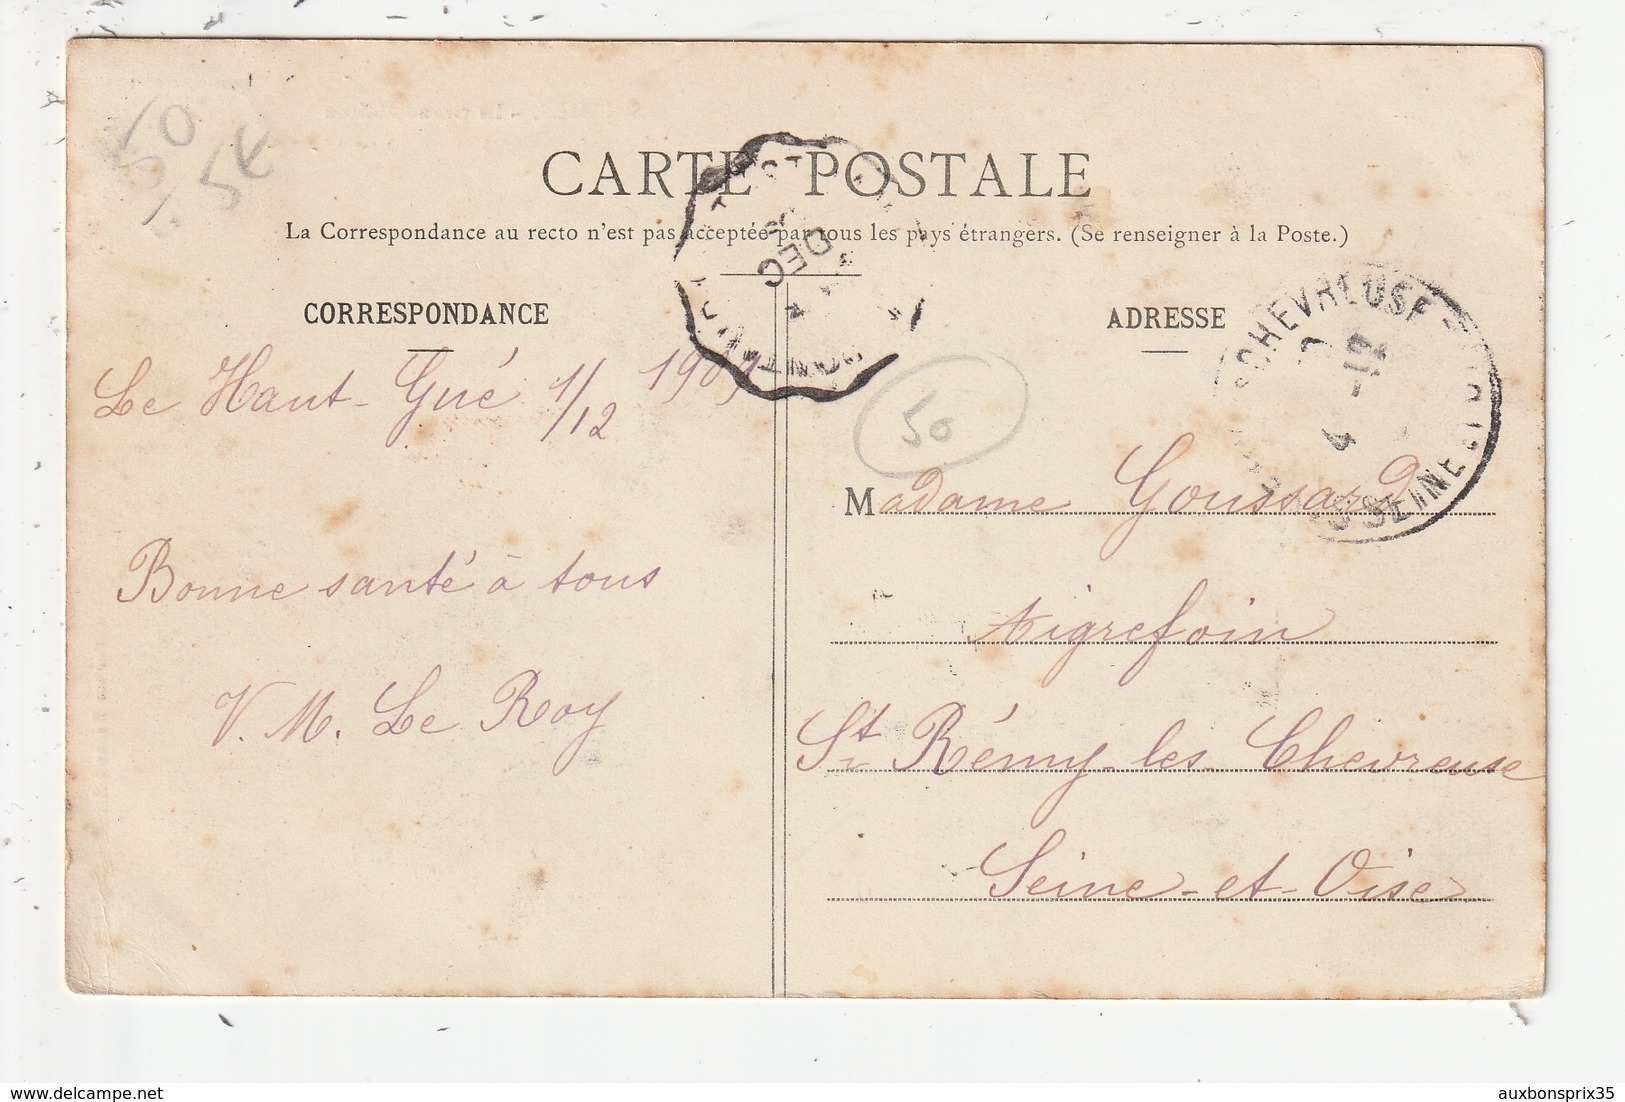 50
5€
CARTE POSTALE
La Correspondance au recto n'est pas acceptée par tous les pays étrangers. (Se renseigner à la Poste.)
DEC
CORRESPONDANCE
ADRESSE
CHEVREUSE
4 -12
SEINE
Le Haut-Gué 1/12 1907
50
Madame Goussard
Aigrefoin
St Rémy-les-Chevreuse
Seine-et-Oise
Bonne santé à tous
V. M. Le Roy
www.delcampe.net
auxbonsprix35